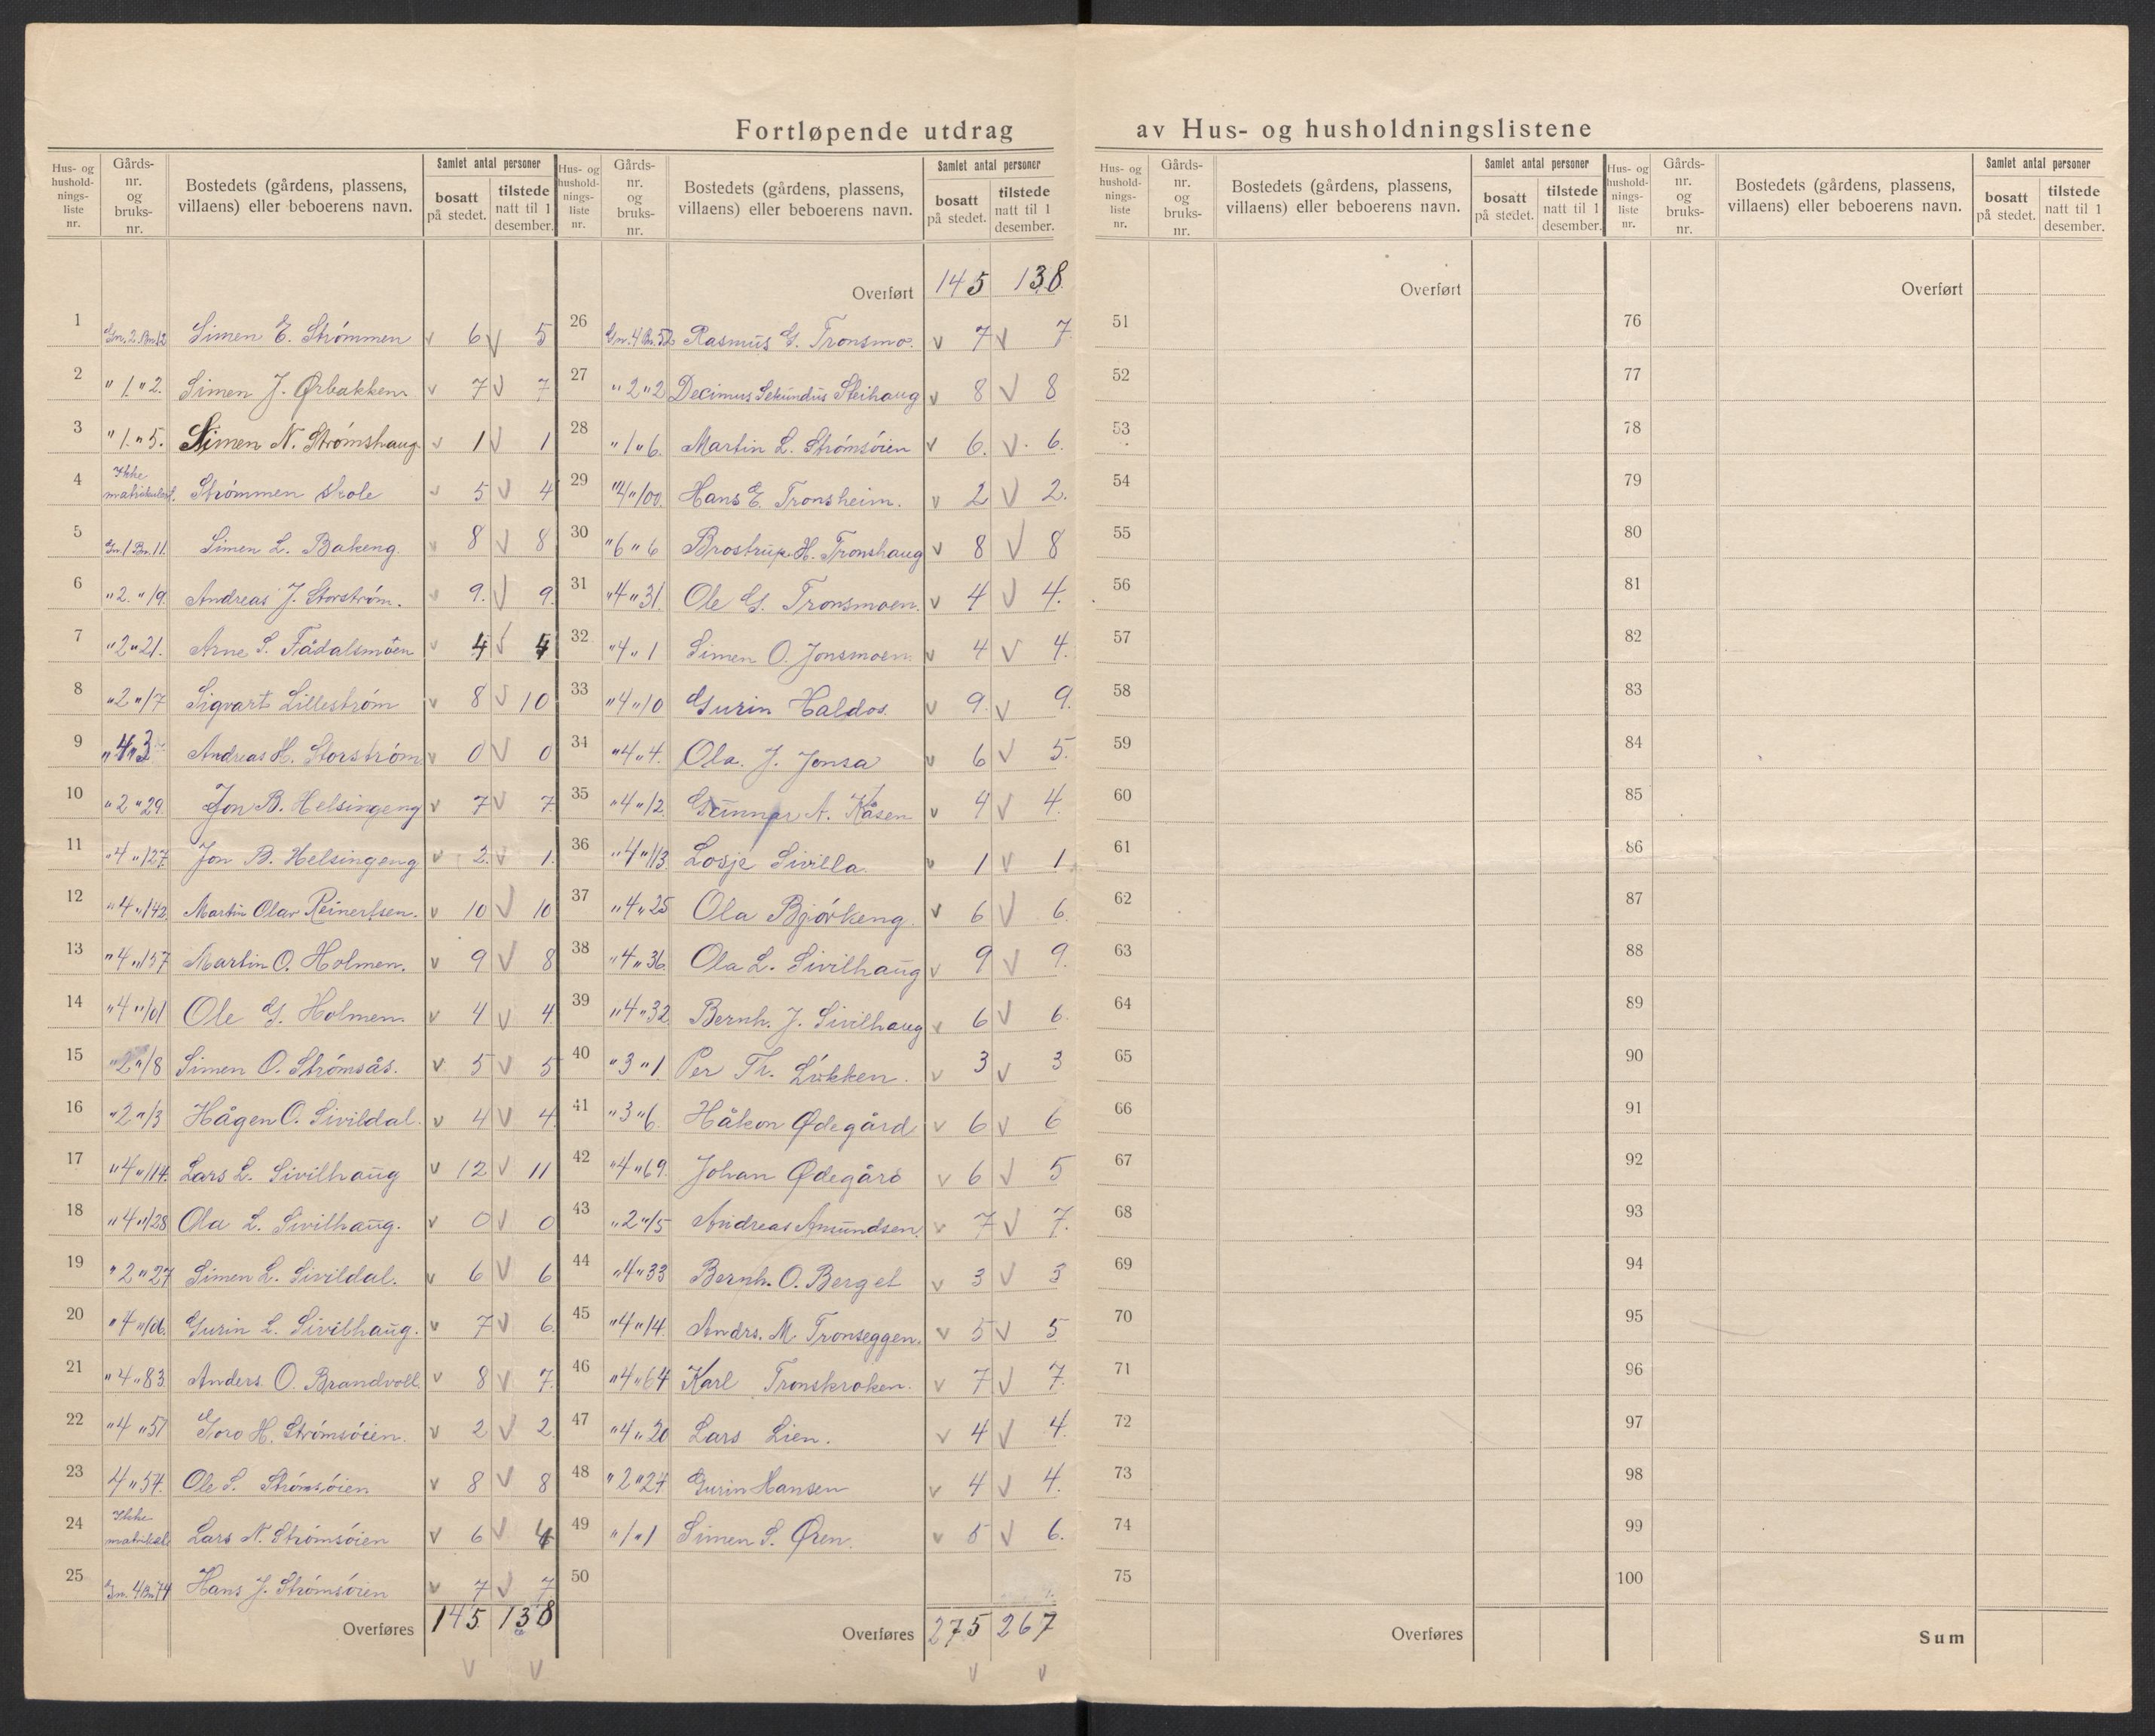 Fortløpende utdrag av Hus- og husholdningslistene
Hus- og hushold-nings-liste nr. Gårds-nr. og bruks-nr. Bostedets (gårdens, plassens, villaens) eller beboerens navn. Samlet antal personer bosatt på stedet. tilstede natt til 1 desember.
1 Gn. 2. Bn 12 Simen E. Strømmen v 6 v 5
2 " 1. " 2. Simen J. Ørbakken v 7 v 7
3 " 1. " 5. Simen N. Strømshaug v 1 v 1
4 Ikke matrikulert. Strømmen skole v 5 v 4
5 Gn. 1 Bn. 11. Simen L. Bakeng. v 8 v 8
6 " 2. " 19. Andreas J. Storstrøm. v 9. v 9.
7 " 2 " 21. Arne S. Fådalsmoen v 4 v 4
8 " 2 " 17 Sigvart Lillestrøm v 8 v 10
9 " 4 " 3 Andreas H. Storstrøm v 0 v 0
10 " 2 " 29. Jon B. Helsingeng v 7 v 7.
11 " 4 " 127. Jon B. Helsingeng v 2. v 1.
12 " 4 " 142. Martin Olav Reinertsen. v 10 v 10
13 " 4 " 157 Martin O. Holmen. v 9 v 8
14 " 4 " 101 Ole G. Holmen. v 4 v 4.
15 " 2 " 18 Simen O. Strømsås. v 5 v 5
16 " 2 " 13 Hågen O. Sivildal. v 4 v 4.
17 " 4 " 114. Lars L. Sivilhaug v 12 v 11
18 " 4 " 128 Ola L. Sivilhaug. v 0 v 0
19 " 2 " 27 Simen L. Sivildal. v 6 v 6
20 " 4 " 106. Gurin L. Sivilhaug. v 7 v 6.
21 " 4 " 83. Anders. O. Brandvoll. v 8 v 7.
22 " 4 " 57 Goro H. Strømsøien. v 2 v 2.
23 4 " 54. Ole S. Strømsøien v 8 v 8
24 Ikke Lars N. Strømsøien v 6 v 4
25 Gn. 4 Bn 74 Hans J. Strømsøien v 7 v 7
Overføres 145 138
v v
Hus- og hushold-nings-liste nr. Gårds-nr. og bruks-nr. Bostedets (gårdens, plassens, villaens) eller beboerens navn. Samlet antal personer bosatt på stedet. tilstede natt til 1 desember.
Overført 145 138.
26 Gn. 4 Bn. 52 Rasmus G. Tronsmo. v 7 v 7.
27 " 2 " 2 Decimus Sekundus Steihaug v 8 v 8
28 " 1 " 6. Martin L. Strømsøien v 6. v 6.
29 " 4 " 100. Hans E. Tronsheim. v 2 v 2.
30 " 6 " 6 Brostrup H. Tronshaug v 8 v 8
31 " 4 " 31. Ole G. Tronsmoen. v 4 v 4.
32 " 4 " 1 Simen O. Jonsmoen. v 4 v 4.
33 " 4 " 10 Gurin Haldos. v 9. v 9.
34 " 4 " 4. Ola. J. Jonsa v 6 v 5.
35 " 4 " 12. Gunnar A. Kåsen v 4 v 4.
36 " 4 " 113. Losje Sivilla. v 1 v 1.
37 " 4 " 25 Ola Bjørkeng. v 6 v 6.
38 " 4 " 36. Ola L. Sivilhaug v 9 v 9.
39 " 4 " 32. Bernh. J. Sivilhaug v 6 v 6.
40 " 3 " 1. Per Tr. Løkken. v 3 v 3
41 " 3 " 6. Håkon Ødegård v 6 v 6
42 " 4 " 69. Johan Ødegård v 6 v 5
43 " 2 " 15 Andreas Amundsen. v 7 v 7.
44 " 4 " 33 Bernh. O. Berget v 3 v 3
45 " 4 " 14. Andrs. M. Tronseggen. v 5 v 5
46 " 4 " 64 Karl Tronskroken. v 7 v 7.
47 " 4 " 20 Lars Lien. v 4 v 4.
48 " 2 " 24 Gurin Hansen v 4 v 4.
49 " 1 " 1 Simen S. Øren. v 5 v 6.
50
Overføres 275 267
v v
Hus- og hushold-nings-liste nr. Gårds-nr. og bruks-nr. Bostedets (gårdens, plassens, villaens) eller beboerens navn. Samlet antal personer bosatt på stedet. tilstede natt til 1 desember.
Overført
51
52
53
54
55
56
57
58
59
60
61
62
63
64
65
66
67
68
69
70
71
72
73
74
75
Overføres
Hus- og hushold-nings-liste nr. Gårds-nr. og bruks-nr. Bostedets (gårdens, plassens, villaens) eller beboerens navn. Samlet antal personer bosatt på stedet. tilstede natt til 1 desember.
Overført
76
77
78
79
80
81
82
83
84
85
86
87
88
89
90
91
92
93
94
95
96
97
98
99
100
Sum